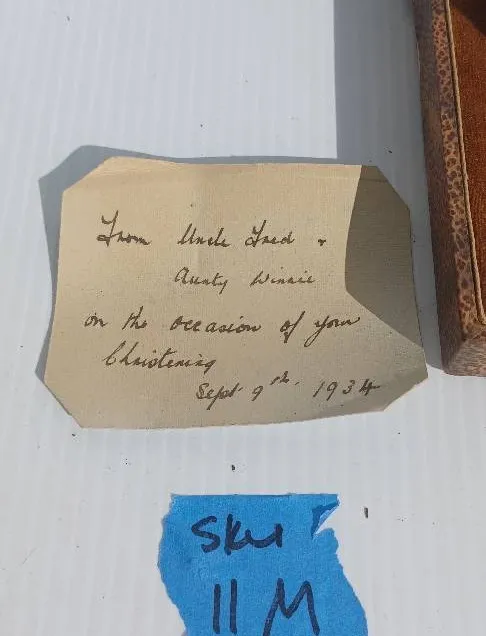 From Uncle Fred +
Aunty Winnie
on the occasion of your
Christening
Sept 9th. 1934
SKU
11 M